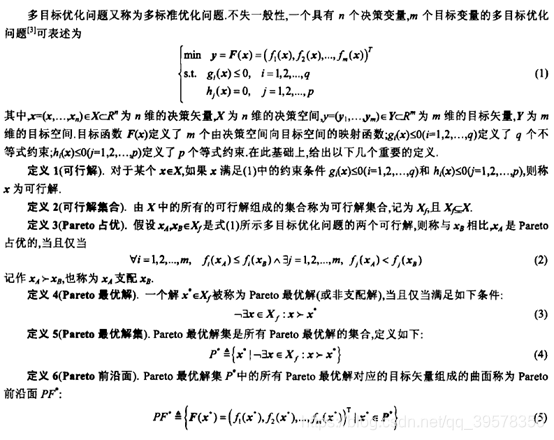 多目标优化问题又称为多标准优化问题.不失一般性,一个具有 n 个决策变量,m 个目标变量的多目标优化
问题[3]可表述为
min y = F(x) = (f₁(x), f₂(x),..., fₘ(x))ᵀ
s.t. gᵢ(x) ≤ 0, i = 1,2,...,q (1)
hⱼ(x) = 0, j = 1,2,...,p
其中,x=(x,…,xₙ)∈X⊂Rⁿ为 n 维的决策矢量,X 为 n 维的决策空间,y=(y₁,…,yₘ)∈Y⊂Rᵐ为 m 维的目标矢量,Y 为 m
维的目标空间.目标函数 F(x)定义了 m 个由决策空间向目标空间的映射函数;gᵢ(x)≤0(i=1,2,…,q)定义了 q 个不
等式约束;hⱼ(x)≤0(j=1,2,…,p)定义了 p 个等式约束.在此基础上,给出以下几个重要的定义.
定义 1(可行解). 对于某个 x∈X,如果 x 满足(1)中的约束条件 gᵢ(x)≤0(i=1,2,…,q)和 hᵢ(x)≤0(j=1,2,…,p),则称
x 为可行解.
定义 2(可行解集合). 由 X 中的所有的可行解组成的集合称为可行解集合,记为 X_f,且 X_f⊆X.
定义 3(Pareto 占优). 假设 x_A,x_B∈X_f是式(1)所示多目标优化问题的两个可行解,则称与 x_B 相比,x_A 是 Pareto
占优的,当且仅当
∀i = 1,2,...,m, fᵢ(x_A) ≤ fᵢ(x_B) ∧ ∃j = 1,2,...,m, fⱼ(x_A) < fⱼ(x_B) (2)
记作 x_A≻x_B,也称为 x_A 支配 x_B.
定义 4(Pareto 最优解). 一个解 x*∈X_f被称为 Pareto 最优解(或非支配解),当且仅当满足如下条件:
¬∃x ∈ X_f : x ≻ x* (3)
定义 5(Pareto 最优解集). Pareto 最优解集是所有 Pareto 最优解的集合,定义如下:
P* ≜ {x* | ¬∃x ∈ X_f : x ≻ x*} (4)
定义 6(Pareto 前沿面). Pareto 最优解集 P*中的所有 Pareto 最优解对应的目标矢量组成的曲面称为 Pareto
前沿面 PF*:
PF* ≜ {F(x*) = (f₁(x*), f₂(x*),..., fₘ(x*))ᵀ | x* ∈ P*} (5)